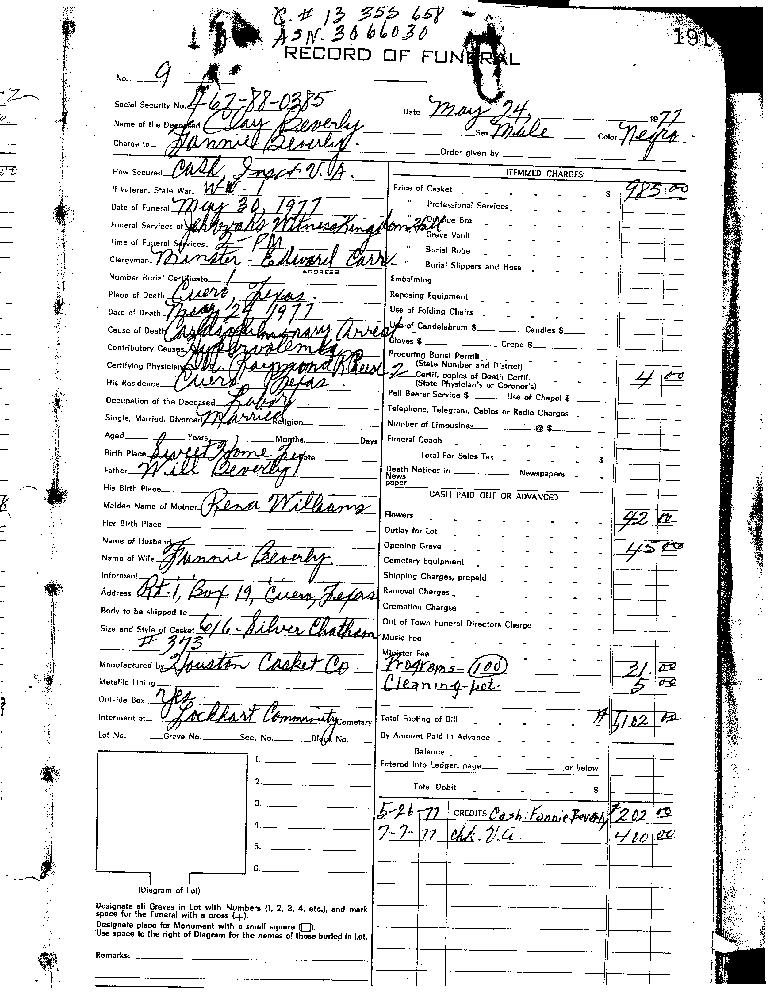 C. # 13 353 658
ASN. 3066030
191
RECORD OF FUNERAL
No. 9
Social Security No. 467-88-0385
Date May 24, 1977
Name of the Deceased Clay Beverly
Sex Male Color Negro
Charge to Fannie Beverly.
Order given by
How Secured Cash, Ins + V.A.
If Veteran, State War, WW-1
Date of Funeral May 30, 1977
Funeral Services at Jehovahs Witness Kingdom Hall
Time of Funeral Services. 2- PM
Clergyman. Minster- Edward Carr
ADDRESS
Number Burial Certificate
Place of Death Cuero, Texas
Date of Death May 24, 1977
Cause of Death Cardiopulmonary Arrest
Contributory Causes Hypervolemia
Certifying Physician Dr. Raymond Reese
His Residence Cuero, Texas.
Occupation of the Deceased Labor
Single, Married, Divorced Married Religion
Aged Years Months Days
Birth Place Sweet Home Tex State
Father Will Beverly
His Birth Place
Maiden Name of Mother Rena Williams
Her Birth Place
Name of Husband
Name of Wife Fannie Beverly
Informant
Address Rt. 1, Box 19, Cuero, Texas
Body to be shipped to
Size and Style of Casket 6/6 - Silver Chatham
# 343
Manufactured by Houston Casket Co
Metallic Lining
Outside Box Yes
Interment at Lockhart Community Cemetery
Lot No. Grave No. Sec. No. Block No.
1.
2.
3.
4.
5.
6.
(Diagram of Lot)
Designate all Graves in Lot with Numbers (1, 2, 3, 4, etc.), and mark
space for the Funeral with a cross (+).
Designate place for Monument with a small square (□).
Use space to the right of Diagram for the names of those buried in Lot.
Remarks:
ITEMIZED CHARGES
Price of Casket $ 985.00
" Professional Services
" Outside Box
" Grave Vault
" Burial Robe
" Burial Slippers and Hose
Embalming
Reposing Equipment
Use of Folding Chairs
Use of Candelabrum $ Candles $
Gloves $ Crepe $
Procuring Burial Permit
(State Number and District)
2 Certif. copies of Death Certif. 4 00
(State Physician's or Coroner's)
Pall Bearer Service $ Use of Chapel $
Telephone, Telegram, Cables or Radio Charges
Number of Limousines @ $
Funeral Coach
Total For Sales Tax $
Death Notices in Newspapers
News
paper
CASH PAID OUT OR ADVANCED
Flowers 42 00
Outlay for Lot
Opening Grave 45 00
Cemetery Equipment
Shipping Charges, prepaid
Removal Charges
Cremation Charges
Out of Town Funeral Directors Charge
Music Fee
Minister Fee
Programs - (100) 21 00
Cleaning-pot. 5 00
Total Footing of Bill # 1,102 00
By Amount Paid in Advance
Balance
Entered Into Ledger, page or below
Total Debit $
5-26-77 CREDITS Cash: Fannie Beverly $202 00
7-7-77 chk. V.A. 400 00